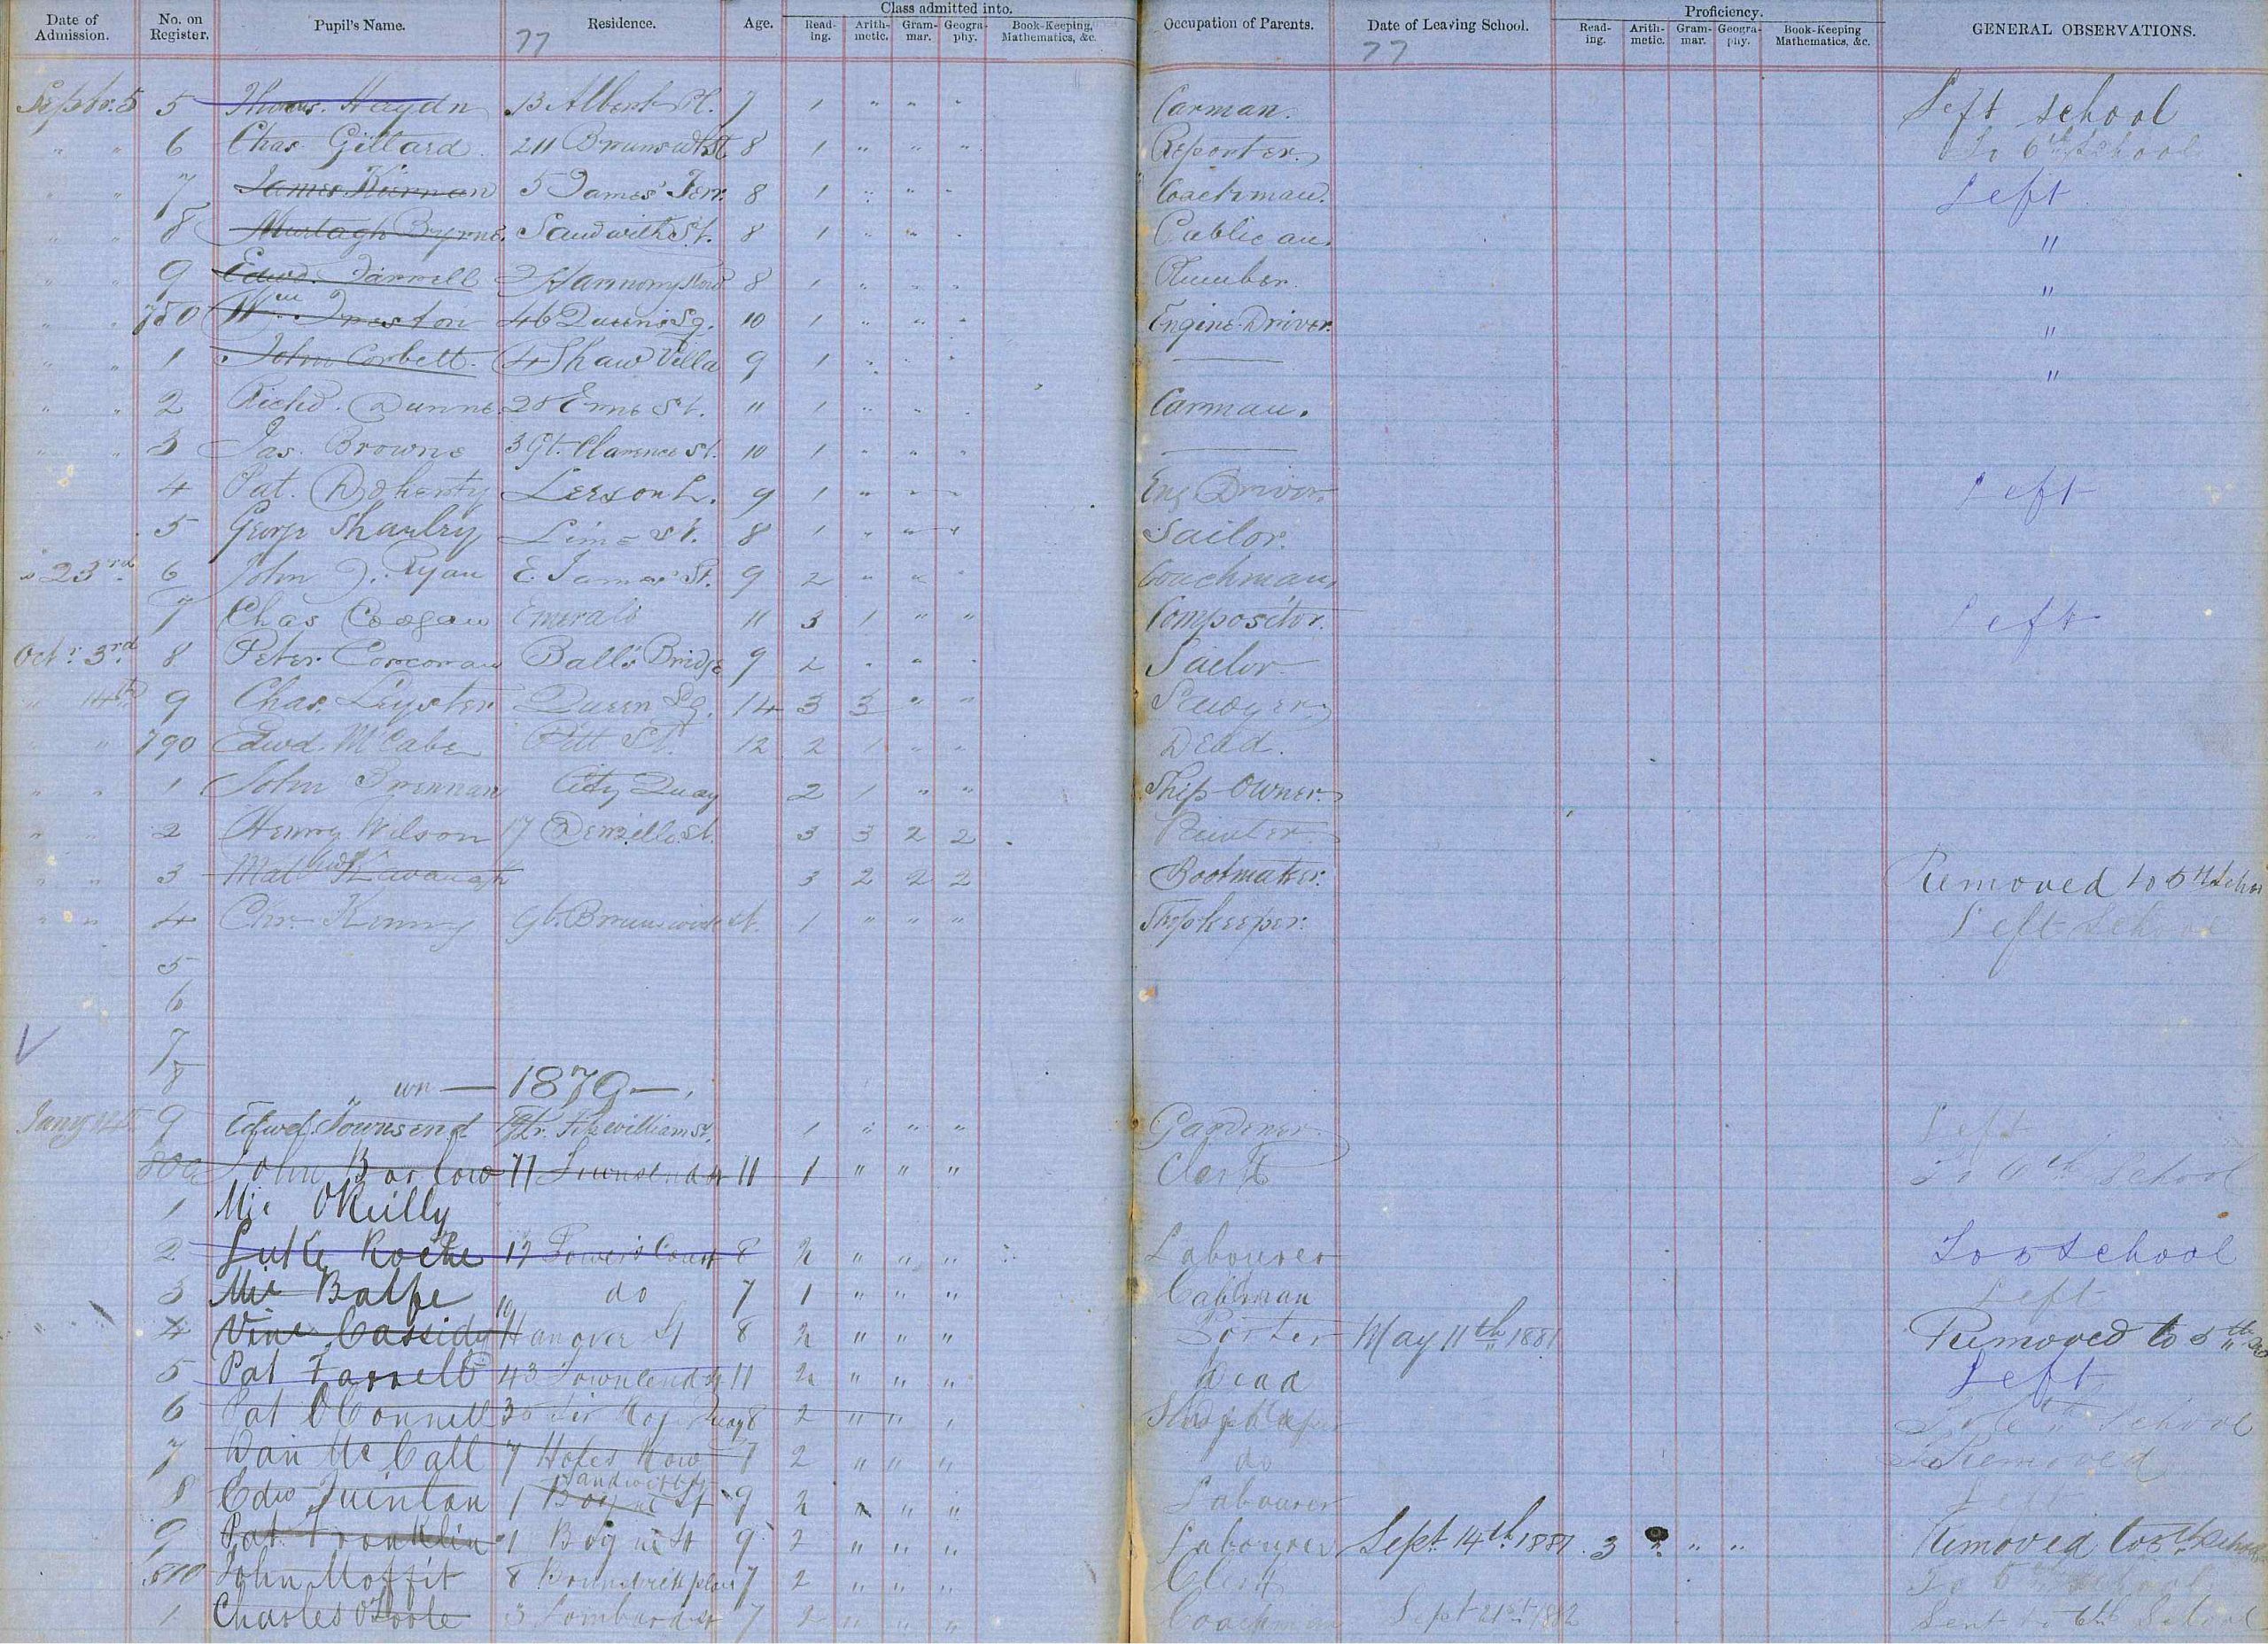 Date of Admission. No. on Register. Pupil's Name. Residence. Age. Class admitted into. Reading. Arithmetic. Grammar. Geography. Book-Keeping, Mathematics, &c. Occupation of Parents. Date of Leaving School. Proficiency. Reading. Arithmetic. Grammar. Geography. Book-Keeping Mathematics, &c. GENERAL OBSERVATIONS.
77 77
Septr. 5 5 Thos. Haydn 13 Albert Pl. 7 1 " " " Carman. Left school
" " 6 Chas Gillard 211 Brunswk St 8 1 " " " Reporter. To 6th School
" " 7 James Kiernan 5 James' Terr. 8 1 " " " Coachman. Left
" " 8 Murtagh Byrne. Sandwith St. 8 1 " " " Publican. "
" " 9 Edwd. Farrell 2 Harmony Row 8 1 " " " Plumber. "
" " 780 Wm Preston 46 Queen's Sq. 10 1 " " " Engine Driver. "
" " 1 John Corbett. 4 Shaw Villa 9 1 " " " — "
" " 2 Richd. Dunne 28 Erne St. 11 1 " " " Carman.
" " 3 Jas. Browne 3 Gt. Clarence St. 10 1 " " " —
4 Pat. Doherty Leeson L. 9 1 " " " Eng Driver Left
5 George Shanley Lime St. 8 1 " " " Sailor.
" 23rd 6 John J. Ryan E. James' St. 9 2 " " " Coachman
7 Chas Coogan Emerald 11 3 1 " " Compositor. Left
Octr. 3rd. 8 Peter Corcoran Ball's Bridge 9 2 " " " Sailor
" 14th 9 Chas. Leyster Queen Sq. 14 3 3 " " Sawyer
" " 790 Edwd McCabe Pitt St. 12 2 1 " " Dead.
" " 1 John Brennan City Quay 2 1 " " Ship Owner.
" " 2 Henry Wilson 17 Denzille St. 3 3 2 2
" " 3 Mathw Kavanagh 3 2 2 2 Bootmaker. Removed to 5th School
" " 4 Chr. Kenny Gt. Brunswick St. 1 " " " Shopkeeper. Left School
5
6
7
8
— 1879 —
Jany 9 Edwd. Townsend Lr. Fitzwilliam St. 1 " " " Gardener. Left
800 John Barlow 77 Townsend St 11 1 " " " Clerk To 6th School
1 Mic OReilly
2 Luke Roche 17 Power's Court 8 2 " " " Labourer To 5 School
3 Mic Balfe 10 do 7 1 " " " Cabman Left
4 Vinc Cassidy Hanover St 8 2 " " " Porter May 11th 1881 Removed to 5th
5 Pat Farrell 43 Townsend St 11 2 " " " Dead Left
6 Pat OConnell 35 Sir Rog Quay 8 2 " " " Shopkeeper School
7 Dan McCall 7 Hopes Row 7 2 " " " do Removed
8 Edw Quinlan 1 Sandwith Boyne St 9 2 " " " Labourer Left
9 Pat Franklin 1 Boyne St 9 2 " " " Labourer Sept 14th 1881 3 " " Removed to 5th School
810 John Moffit 8 Brunswick place 7 2 " " " Clerk To 6th School
1 Charles O'Toole 3 Lombard St 7 2 " " " Coachman Sept 21st 1882 Sent to 6th School